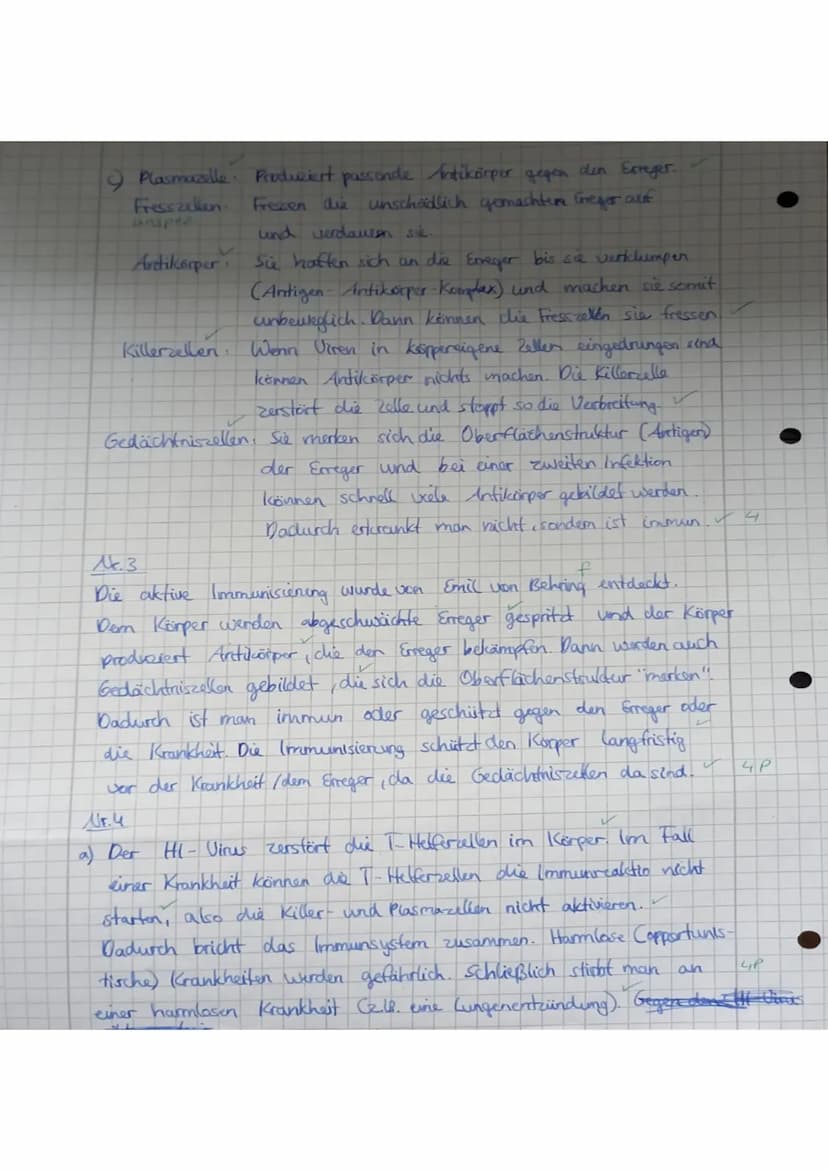 c) Plasmazelle: Produziert passende Antikörper gegen den Erreger.
Fresszellen: Fressen die unschädlich gemachten Erreger auf
und verdauen sie.
Antikörper: Sie haften sich an die Erreger bis sie verklumpen
(Antigen-Antikörper-Komplex) und machen sie somit
unbeweglich. Dann können die Fresszellen sie fressen
Killerzellen: Wenn Viren in körpereigene Zellen eingedrungen sind
können Antikörper nichts machen. Die Killerzelle
zerstört die Zelle und stoppt so die Verbreitung.
Gedächtniszellen: Sie merken sich die Oberflächenstruktur (Antigen)
der Erreger und bei einer zweiten Infektion
können schnell viele Antikörper gebildet werden.
Dadurch erkrankt man nicht, sondern ist immun. 4
Nr.3
f
Die aktive Immunisierung wurde von Emil von Behring entdeckt.
Dem Körper werden abgeschwächte Erreger gespritzt und der Körper
produziert Antikörper, die den Erreger bekämpfen. Dann werden auch
Gedächtniszellen gebildet, die sich die Oberflächenstruktur "merken".
Dadurch ist man immun oder geschützt gegen den Erreger oder
die Krankheit. Die Immunisierung schützt den Körper langfristig
vor der Krankheit/dem Erreger, da die Gedächtniszellen da sind. 4P
Nr.4
a) Der HI-Virus zerstört die T-Helferzellen im Körper. Im Fall
einer Krankheit können die T-Helferzellen die Immunreaktio nicht
starten, also die Killer- und Plasmazellen nicht aktivieren.
Dadurch bricht das Immunsystem zusammen. Harmlose (opportunis-
tische) Krankheiten werden gefährlich. Schließlich stirbt man an 4P
einer harmlosen Krankheit (z.B. eine Lungenentzündung). Gegen den HI Virus